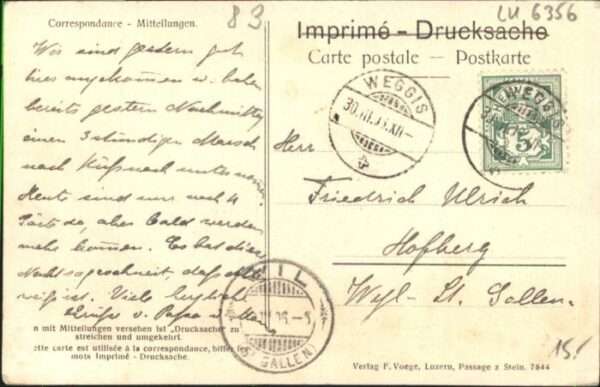 83
LU 6356
Correspondance - Mitteilungen.
Imprimé - Drucksache
Carte postale - Postkarte
Wir sind gestern gut
hier angekommen u. haben
bereits gestern Nachmittag
einen 3 stündigen Marsch
nach Küßnach unternommen
Heute sind nur noch 4
Gäste da, aber bald werden
mehr kommen. Es hat diese
Nacht so geschneit, daß
weiß ist. Viele herzliche
Grüße v. Papa u. Mama
WEGGIS
WEGGIS
5
Herr
Friedrich Ulrich
Hofberg
Wyl - St. Gallen -
WIL
(ST. GALLEN)
n mit Mitteilungen versehen ist "Drucksache" zu
streichen und umgekehrt.
ette carte est utilisée à la correspondance, biffer les
mots Imprimé - Drucksache.
Verlag F. Voege, Luzern, Passage z Stein. 7844
15.-